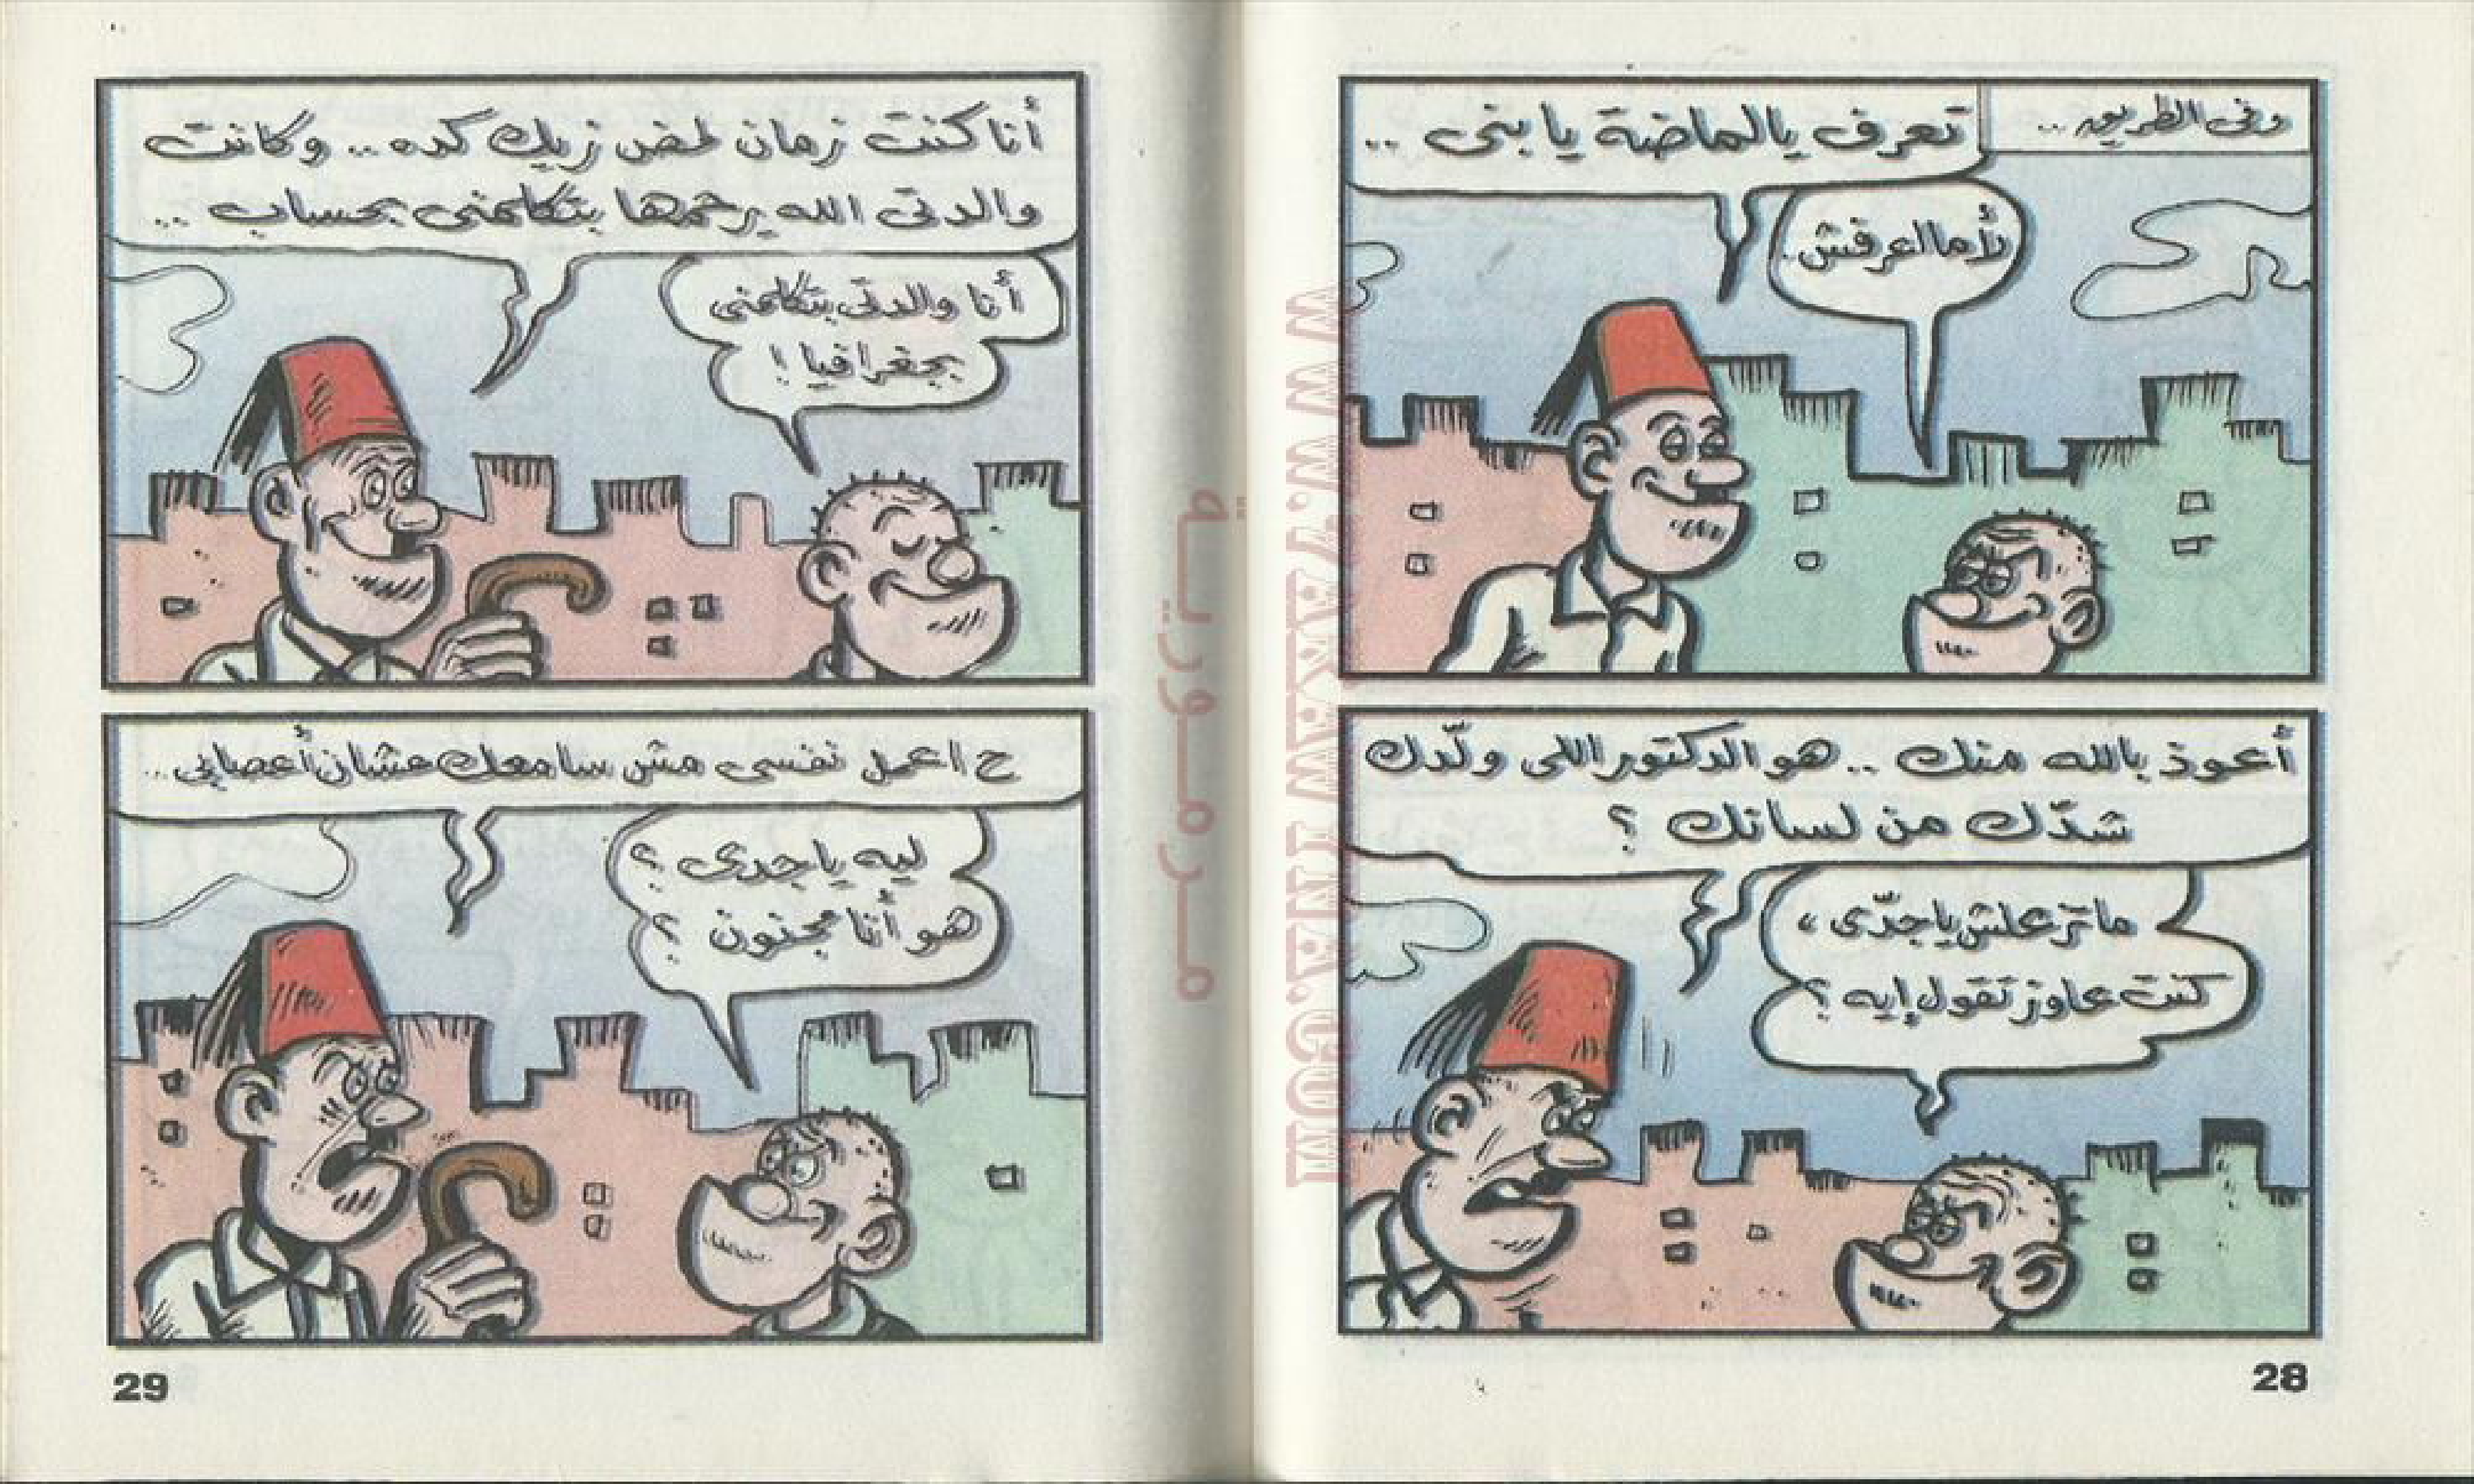 وفى الطريق ..
تعرف يا لماضة يا بنى ..
لأ ما اعرفش .
أعوذ بالله منك .. هو الدكتور اللى ولّدك
شدّك من لسانك ؟
ماتزعلش يا جدّى ،
كنت عاوز تقول إيه ؟
28
أنا كنت زمان لمض زيك كده .. وكانت
والدتى الله يرحمها بتكلمنى بحساب ..
أنا والدتى بتكلمنى
بجغرافيا !
ح اعمل نفسى مش سامعك عشان أعصابى ..
ليه يا جدى ؟
هو أنا مجنون ؟
29